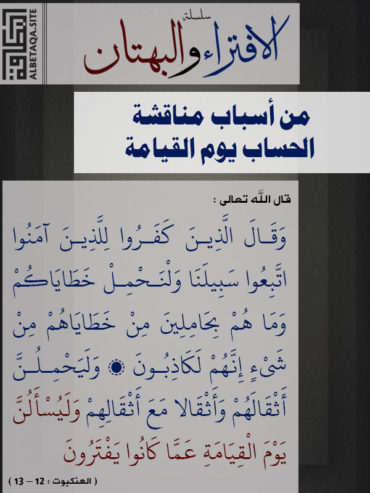 سلسلة
الافتراء والبهتان
البطاقة
ALBETAQA.SITE
من أسباب مناقشة
الحساب يوم القيامة
قال الله تعالى :
وَقَالَ الَّذِينَ كَفَرُوا لِلَّذِينَ آمَنُوا
اتَّبِعُوا سَبِيلَنَا وَلْنَحْمِلْ خَطَايَاكُمْ
وَمَا هُمْ بِحَامِلِينَ مِنْ خَطَايَاهُمْ مِنْ
شَيْءٍ إِنَّهُمْ لَكَاذِبُونَ ۞ وَلَيَحْمِلُنَّ
أَثْقَالَهُمْ وَأَثْقَالًا مَعَ أَثْقَالِهِمْ وَلَيُسْأَلُنَّ
يَوْمَ الْقِيَامَةِ عَمَّا كَانُوا يَفْتَرُونَ
( العنكبوت : 12 – 13 )